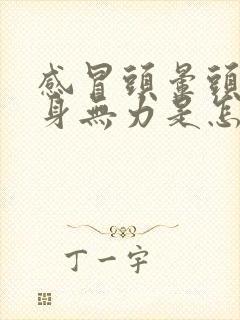 感冒頭暈頭
身無力是怎
丁一宇